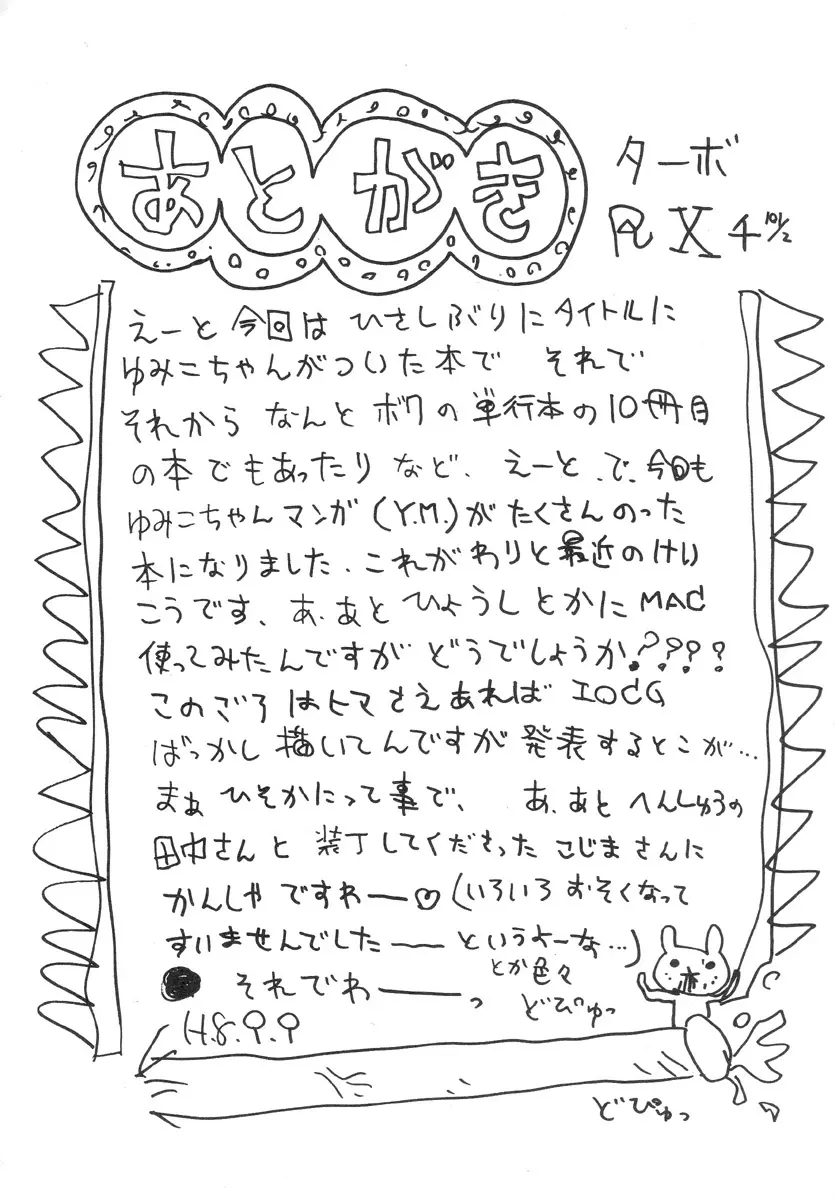 あとがき
ターボ
RX4 10 1/2
えーと今回は ひさしぶりにタイトルに
ゆみこちゃんがついた本で それで
それから なんと ボクの単行本の10冊目
の本でもあったり など、えーと、で、今回も
ゆみこちゃんマンガ(Y.M.)がたくさんのった
本になりました、これがわりと最近のけい
こうです、あ、あと ひょうしとかにMAC
使ってみたんですが どうでしょうか????
このごろはヒマさえあれば エロCG
ばっかし描いてんですが発表するとこが…
まぁ ひそかにって事で、 あ、あと へんしゅうの
田中さんと 装丁してくださった こじまさんに
かんしゃですわー♡(いろいろ おそくなって
すいませんでしたー というよーな…)
とか色々
● それでわーっ
どぴゅっ
H.8.9.9
どぴゅっ